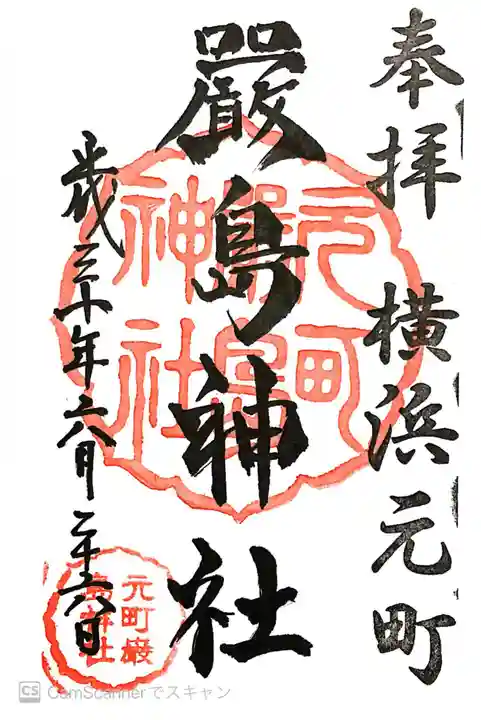 奉拝 横浜元町
嚴島神社
平成三十年六月二十六日
元町嚴島神社
元町厳島神社
CS CamScannerでスキャン